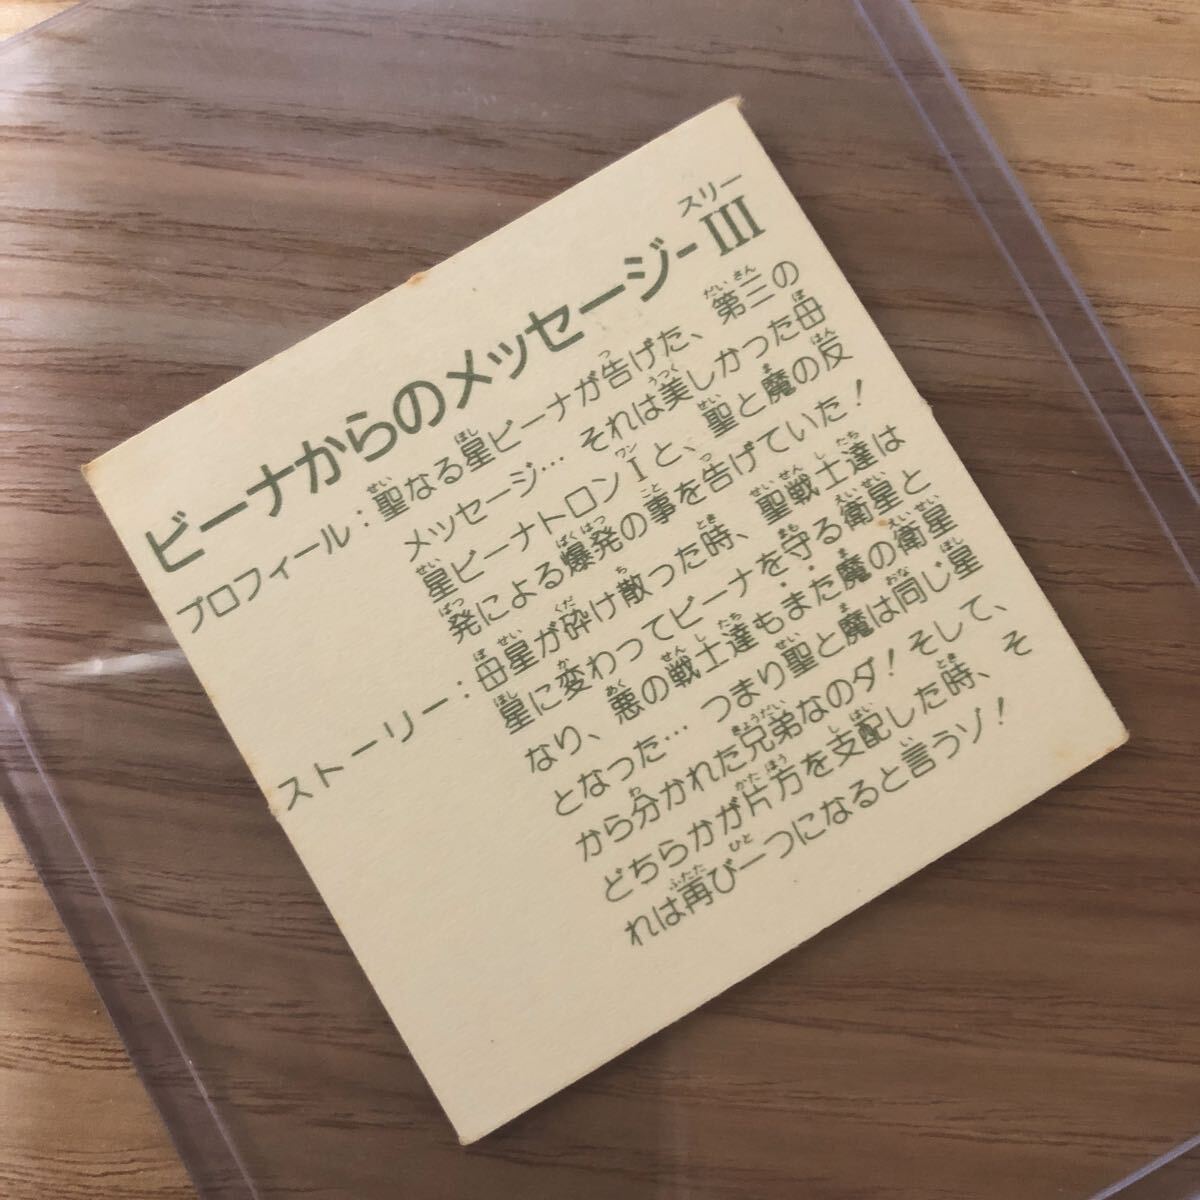 ビーナからのメッセージ-III
プロフィール：聖なる星ビーナが告げた、第三の
メッセージ…それは美しかった母
星ビーナトロンIと、聖と魔の反
発による爆発の事を告げていた！
ストーリー：母星が砕け散った時、聖戦士達は
星に変わってビーナを守る衛星と
なり、悪の戦士達もまた魔の衛星
となった…つまり聖と魔は同じ星
から分かれた兄弟なのダ！そして、
どちらかが片方を支配した時、そ
れは再び一つになると言うゾ！